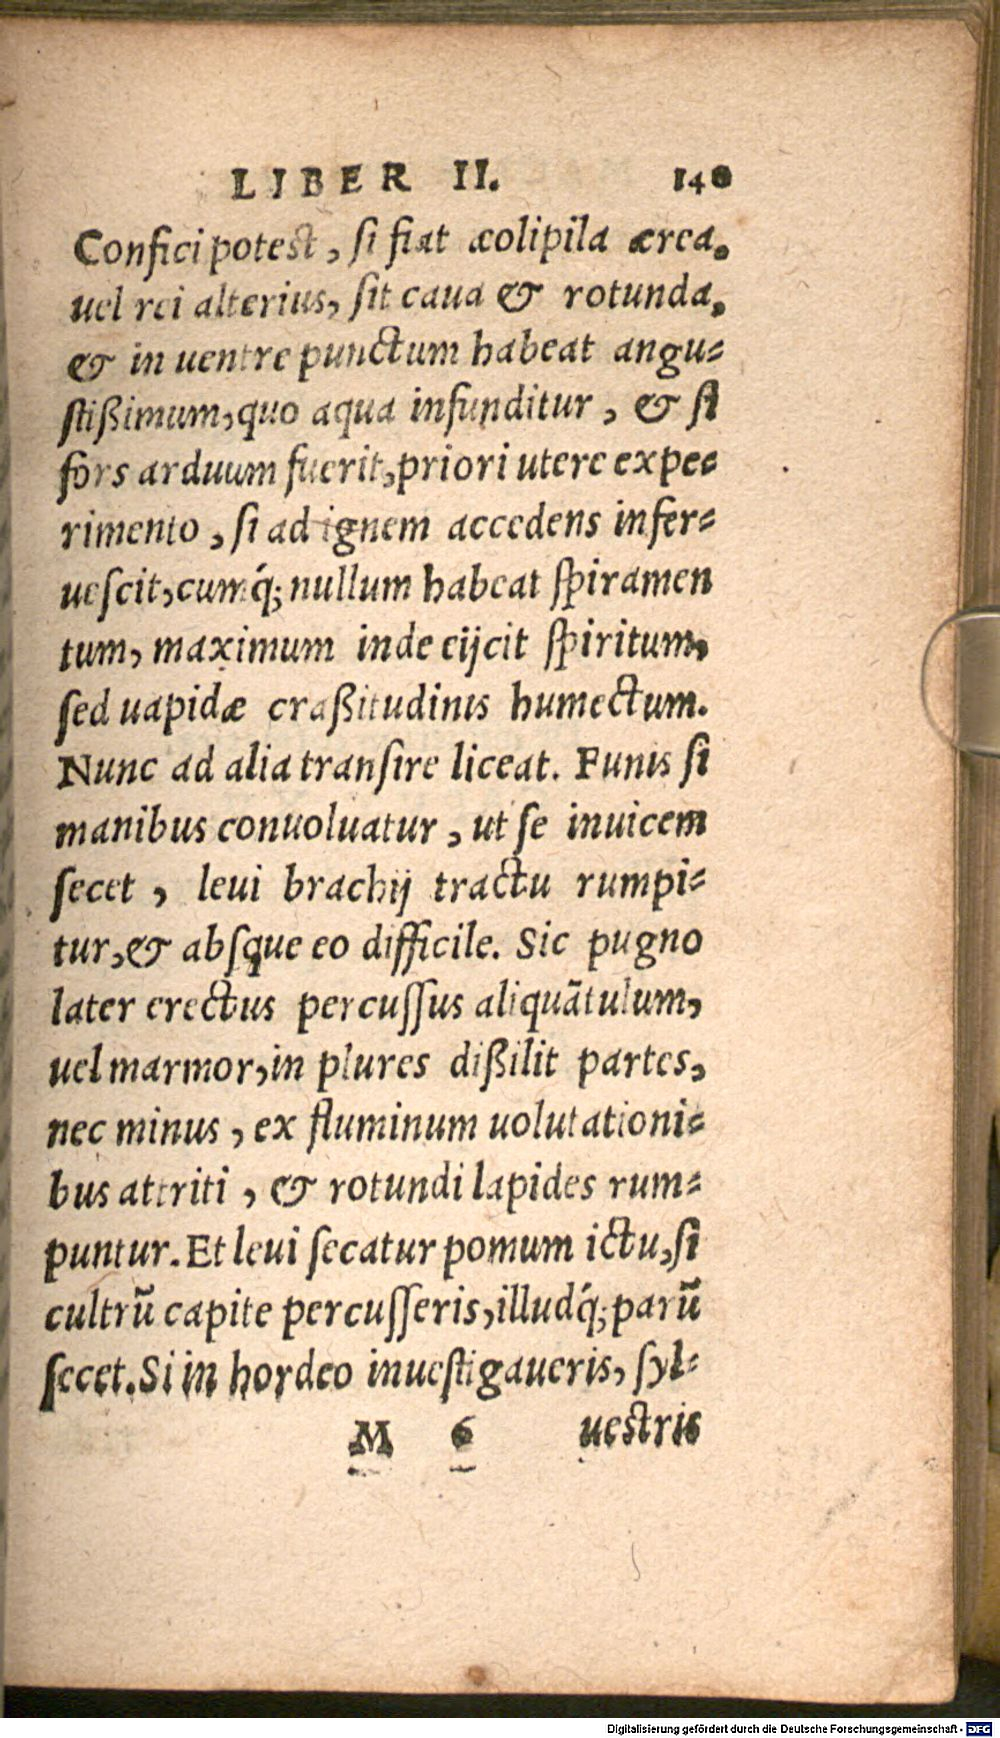 LIBER II. 140
Confici potest, ſi fiat æolipila ærea,
uel rei alterius, ſit caua & rotunda,
& in uentre punctum habeat angu-
ſtißimum, quo aqua infunditur, & ſi
fors arduum fuerit, priori utere expe-
rimento, ſi ad ignem accedens infer-
ueſcit, cumq́; nullum habeat ſpiramen
tum, maximum inde eijcit ſpiritum,
ſed uapidæ craßitudinis humectum.
Nunc ad alia tranſire liceat. Funis ſi
manibus conuoluatur, ut ſe inuicem
ſecet, leui brachij tractu rumpi-
tur, & abſque eo difficile. Sic pugno
later erectus percuſſus aliquãtulum,
uel marmor, in plures dißilit partes,
nec minus, ex fluminum uolutationi-
bus attriti, & rotundi lapides rum-
puntur. Et leui ſecatur pomum ictu, ſi
cultrũ capite percuſſeris, illudq́; parũ
ſecet. Si in hordeo inueſtigaueris, ſyl-
M 6 ueſtris
Digitalisierung gefördert durch die Deutsche Forschungsgemeinschaft - DFG